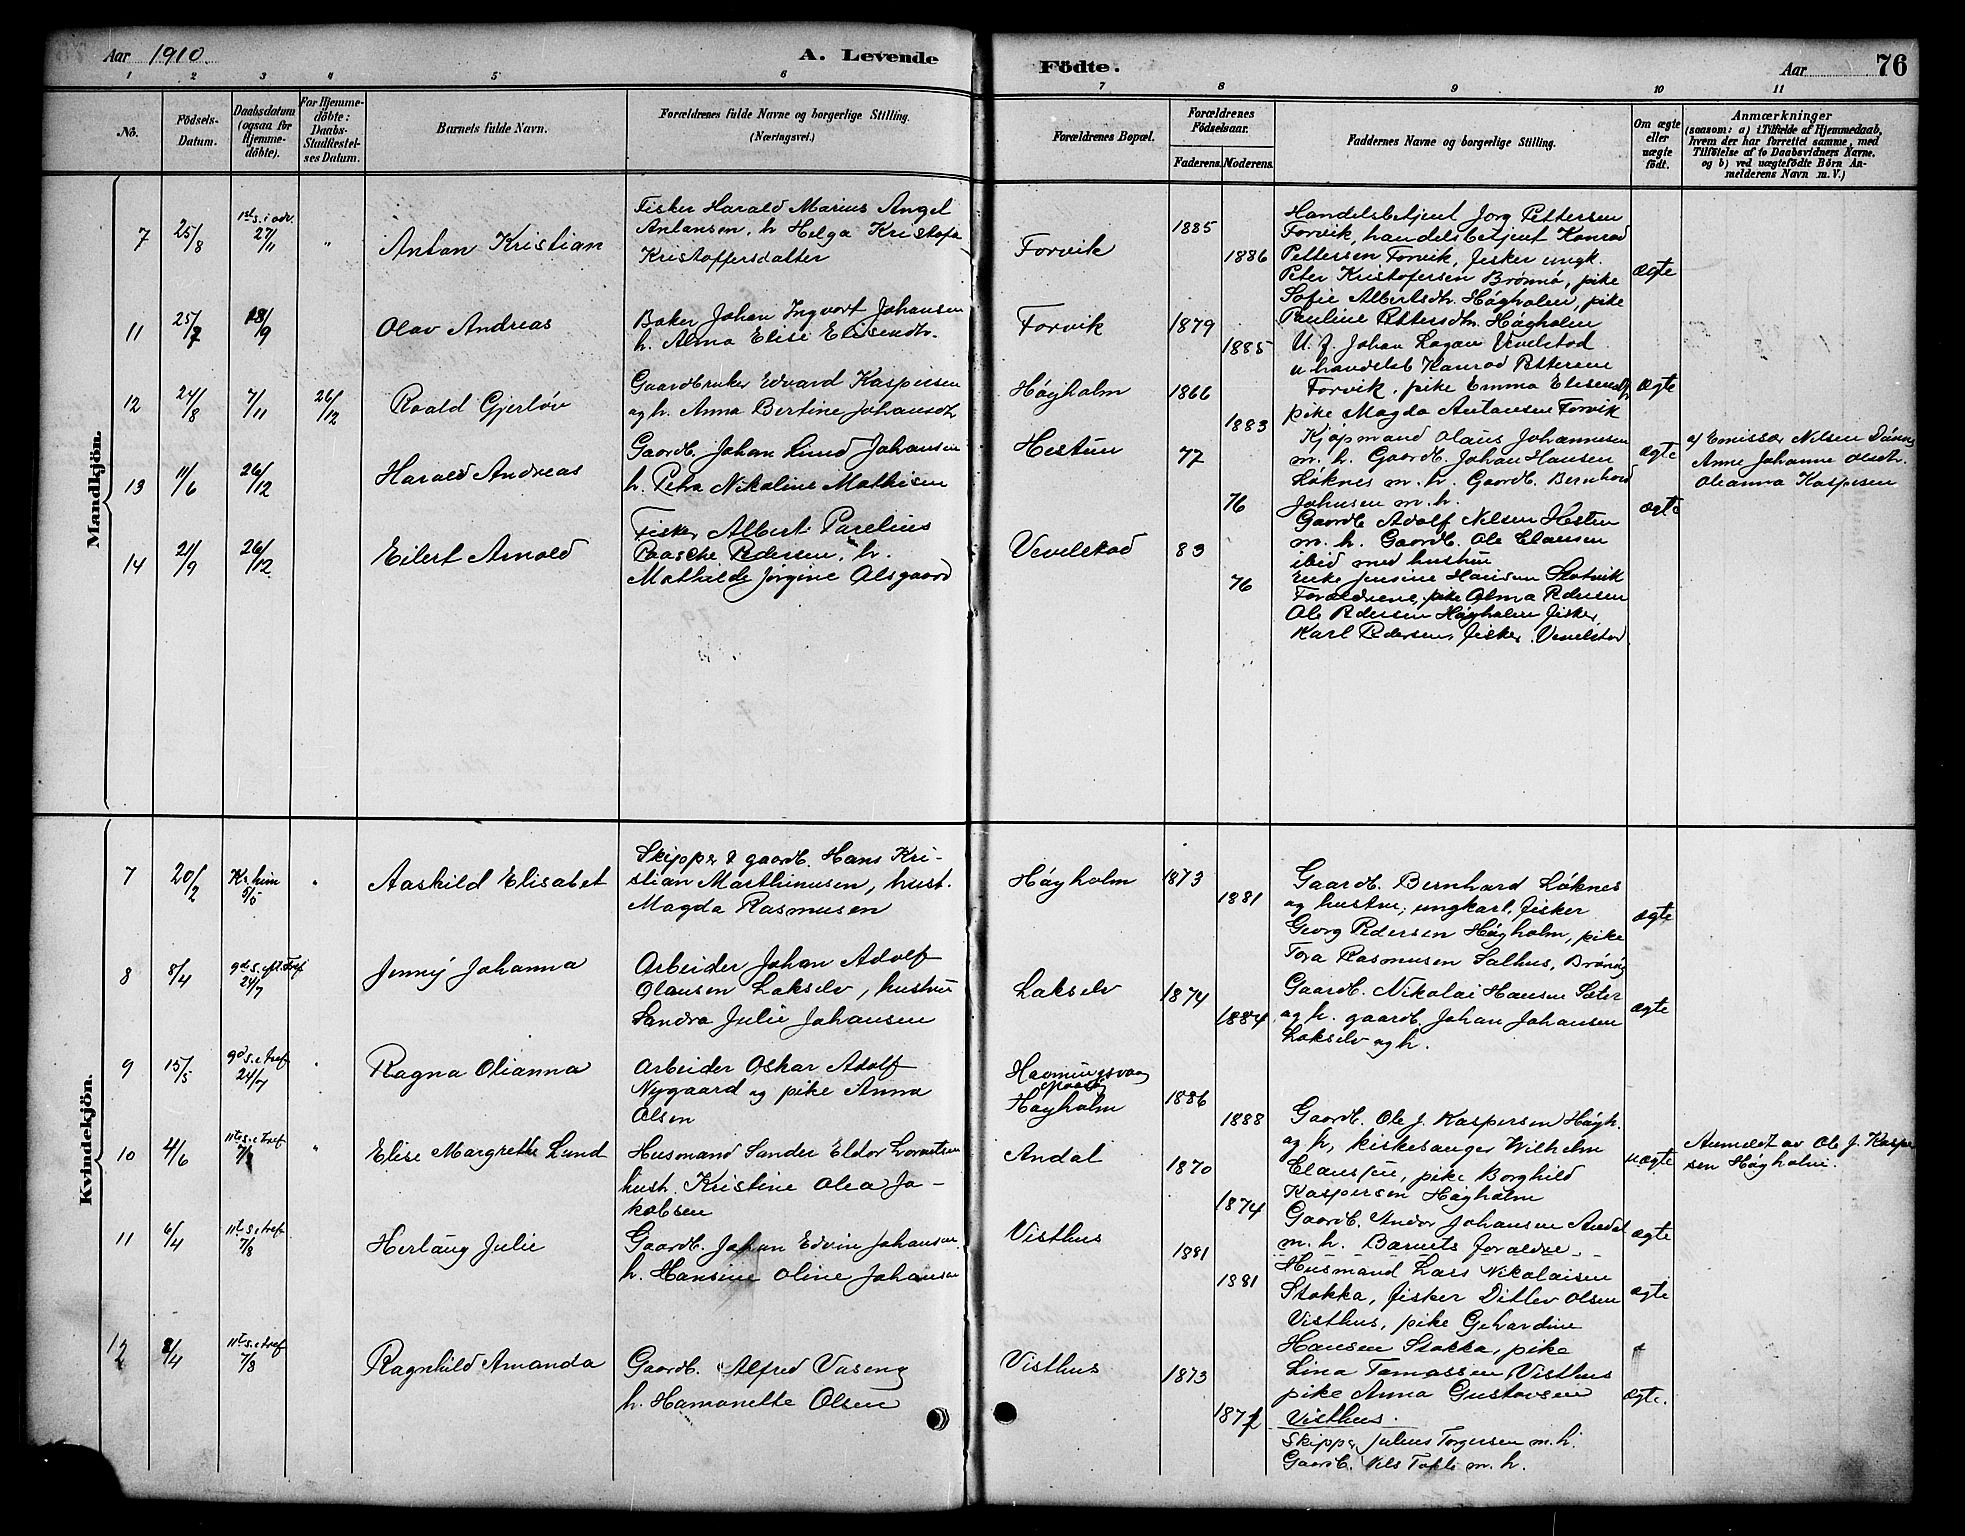 Aar 1910. A. Levende Födte. Aar 76
1 2 3 4 5 6 7 8 9 10 11
No. Födsels-Datum. Daabsdatum (ogsaa for Hjemme-döbte). For Hjemme-döbte: Daabs-Stadfæstel-ses Datum. Barnets fulde Navn. Forældrenes fulde Navne og borgerlige Stilling. (Næringsvei.) Forældrenes Bopæl. Forældrenes Födselsaar. Faderens. Moderens. Faddernes Navne og borgerlige Stilling. Om ægte eller uægte födt. Anmærkninger (saasom: a) i Tilfælde af Hjemmedaab, hvem der har forrettet samme, med Tilföielse af to Daabsvidners Navne, og b) ved uægtefödte Börn An-melderens Navn m. V.)
Mandkjön.
7 25/8 1st s. i adv. 27/11 " Anton Kristian
Fisker Harald Marius Angel
Antonsen, h Helga Kristofa
Kristoffersdatter
Forvik 1885 1886
Handelsbetjent Jorg Pettersen
Forvik, handelsbetjent Konrad
Pettersen Forvik, fisker ungk.
Peter Kristofersen Brønnø, pike
Sofie Albertsdtr. Høgholm, pike
Pauline Pettersdtr. Høgholm
ægte
11 25/7 18/9 Olav Andreas
Baker Johan Ingvart Johansen
h. Alma Elise Elisendtr.
Forvik 1879 1885
U. f. Johan Vevelstad
u handelsb Konrad Petterene
Forvik, pike Emma
pike Magda Antonsen Forvik
ægte
12 24/8 7/11 26/12 Roald Gjerløv
Gaardbruker Edvard Kaspersen
og h. Anna Bertine Johansdt.
Høgholm 1866 1883
Kjøpmand Olaus Johannesen
m. h. Gaardb. Johan Hansen
Løknes m. h. Gaardb. Bernhard
Johnsen m. h.
ægte
af Emissær Nilsen Dønnes
Anne Johanne Olsdtr.
Oleanna Kaspersen
13 11/6 26/12 Harald Andreas
Gaardb. Johan Lund Johansen
h. Petra Nikoline Mathisen
Hestun 77 76
Gaardb Adolf Nilsen Hestun
m. h. Gaardb. Ole Clausen
ibid med hustru
ægte
14 21/9 26/12 Eilert Arnold
Fisker Albert Parelius
Paasche Pedersen, h.
Mathilde Jørgine Alsgaard
Vevelstad 83 76
Enke Jensine Hansen Slotvik
Forældrene, pike Alma Pedersen
Ole Pedersen Høgholm fisker,
Karl Pedersen, fisker, Vevelstad
Kvindekjön.
7 20/2 Kr. him 5/5 " Aaskild Elisabet
Skipper & gaardb. Hans Kri-
stian Marthinusen, hust.
Magda Rasmusen
Høgholm 1873 1881
Gaardb. Bernhard Løknes
og hustru, ungkarl, fisker
Georg Pedersen Høgholm, pike
Tora Rasmusen Salhus, Brønnø
ægte
8 8/4 9d s. eft. Tref 24/7 Jenny Johanna
Arbeider Johan Adolf
Olausen Lakselv, hustru
Sandra Julie Johansen
Lakselv 1874 1884
Gaardb. Nikolai Hansen Sæter
og h. gaardb. Johan Johansen
Lakselv og h.
ægte
9 15/5 9d s. e tref 24/7 " Ragna Olianna
Arbeider Oskar Adolf
Nygaard og pike Anna
Olsen
Høgholm 1886 1888
Gaardb. Ole J. Kaspersen Høgh.
og h, kirkesanger Wilhelm
Clausen, pike Borghild
Kaspersen Høgholm
uægte
Anmeldt av Ole J. Kasper
sen Høgholm.
10 4/6 11te s. e tref 7/8 " Elise Margrethe Lund
Husmand Sander Eldor Lorentsen
hust. Kristine Olea Ja-
kobsen
Andal 1870 1874
Gaardb. Andor Johansen Andal
m. h. Barnets forældre
ægte
11 6/4 11te s. e tref 7/8 Herlaug Julie
Gaardb. Johan Edvin Johansen
h. Hansine Oline Johansen
Visthus 1881 1881
Husmand Lars Nikolaisen
Stokka, fisker Ditlev Olsen
Visthus, pike Gehardine
Hansen Stokka, pike
Lina Tomassen Visthus
pike Anna Gustavsen
Visthus.
ægte
12 2/4 11te s. e tref 7/8 Ragnhild Amanda
Gaardb. Alfred Vaseng
h. Hamanette Olsen
Visthus 1873
Skipper Julius Torgersen m. h.
Gaardb. Nils Tofte m. h.
ægte.